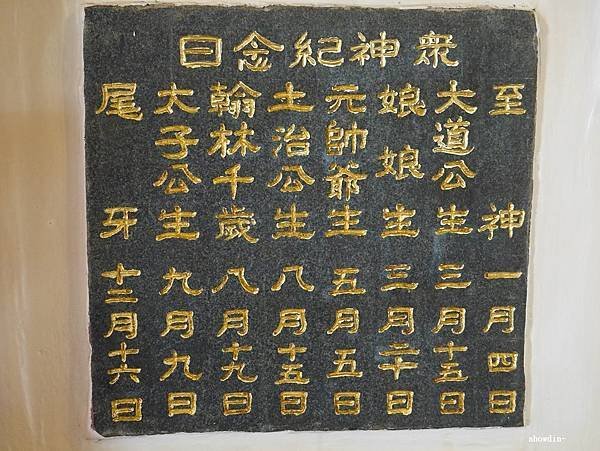 眾神紀念日
至神一月四日
大道公生三月十五日
娘娘生三月二十日
元帥爺生五月五日
土治公生八月十五日
翰林千歲八月十九日
太子公生九月九日
尾牙十二月十六日
ahowdin-